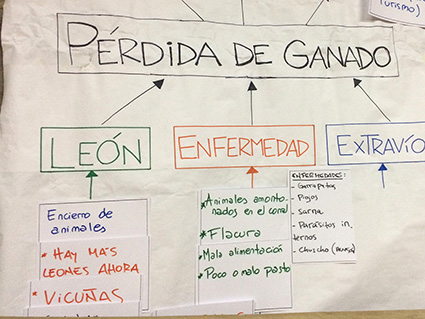 turismo)
PÉRDIDA DE GANADO
LEÓN
ENFERMEDAD
EXTRAVÍO
Encierro de
animales
* HAY MÁS
LEONES AHORA
* VICUÑAS
* Animales amonto-
nados en el corral
* Flacura
* Mala alimentación
* Poco o malo pasto
ENFERMEDADES:
- Garrapatas
- Piojos
- Sarna
- Parásitos in
ternos
- Chuscho